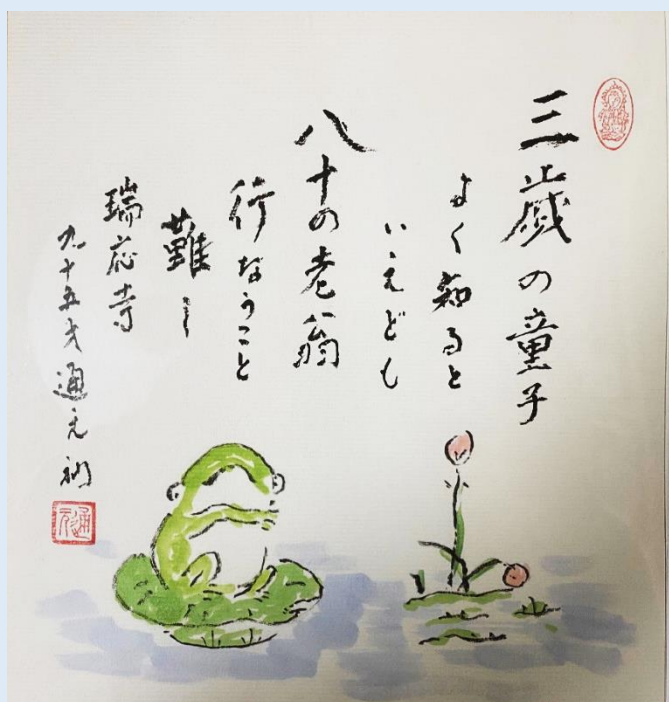 三歳の童子
よく知ると
いえども
八十の老翁
行なうこと
難し
瑞応寺
九十五才通元衲
通元